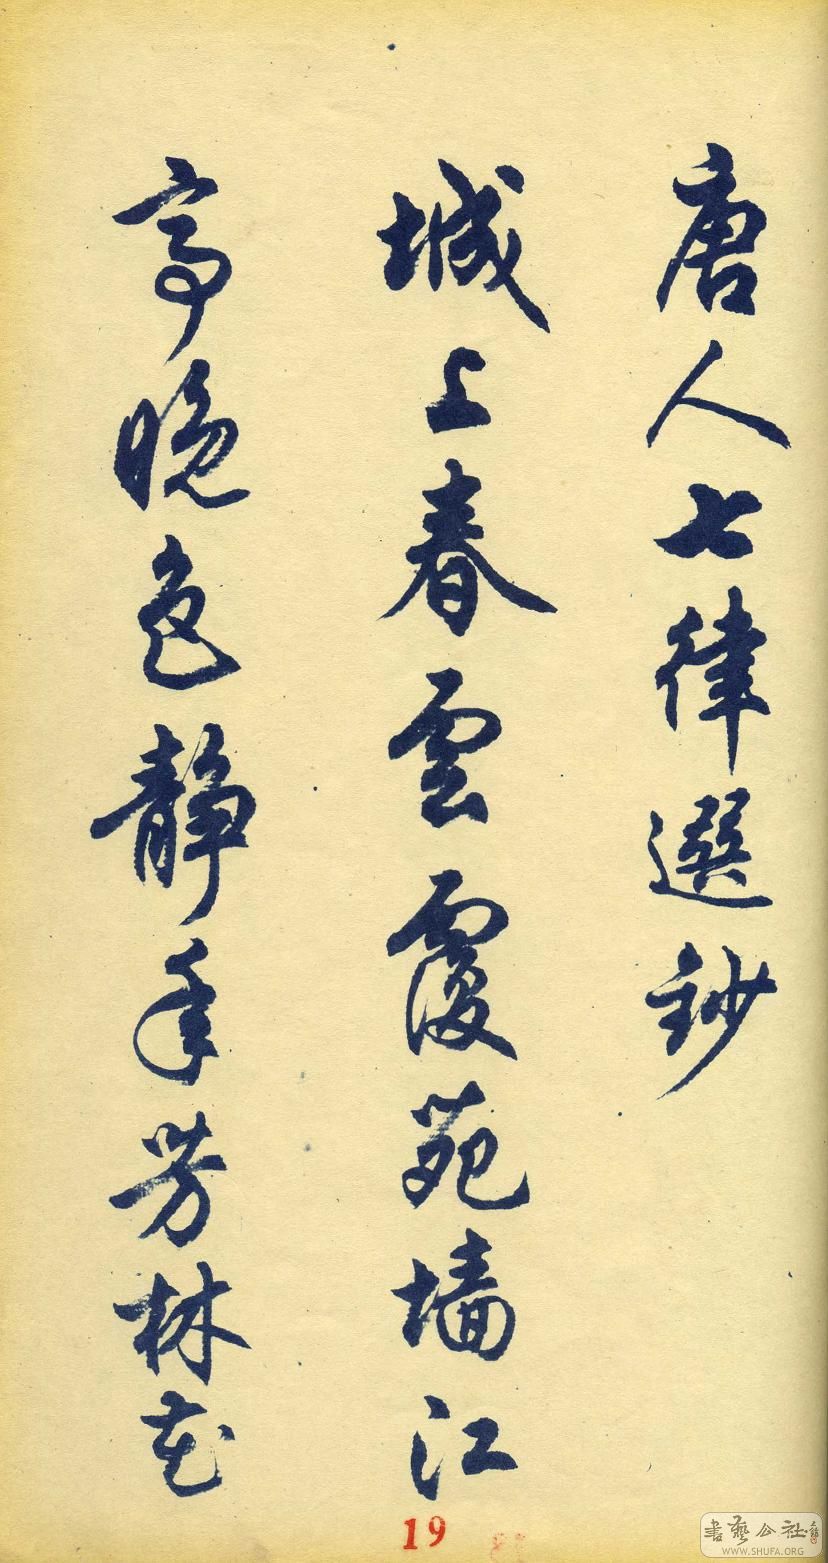 唐人七律選鈔
城上春雲覆苑墙江
亭晚色静年芳林花
19
書藝公社
WWW.SHUFA.ORG